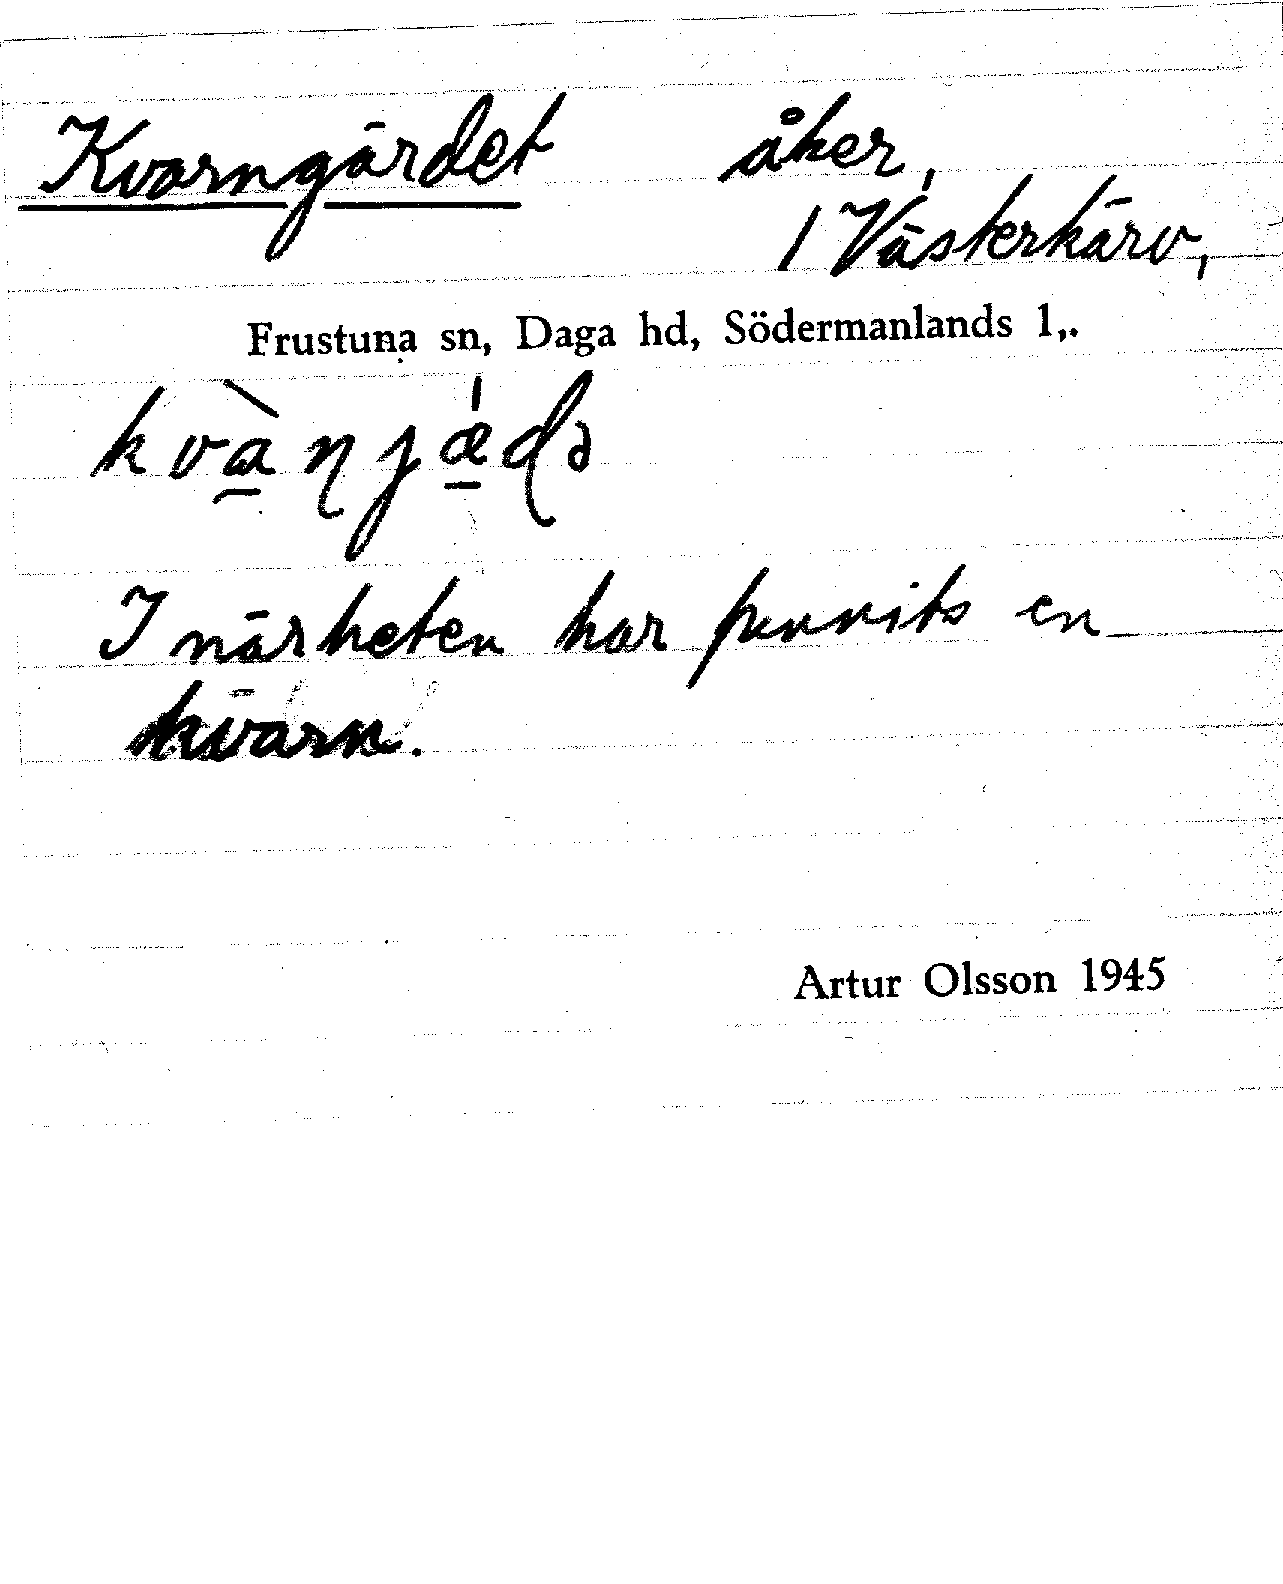 Kvarngärdet åker,
/ Västerkärv,
Frustuna sn, Daga hd, Södermanlands l,.
kvàɳjǽɖə
I närheten har funnits en
kvarn.
Artur Olsson 1945